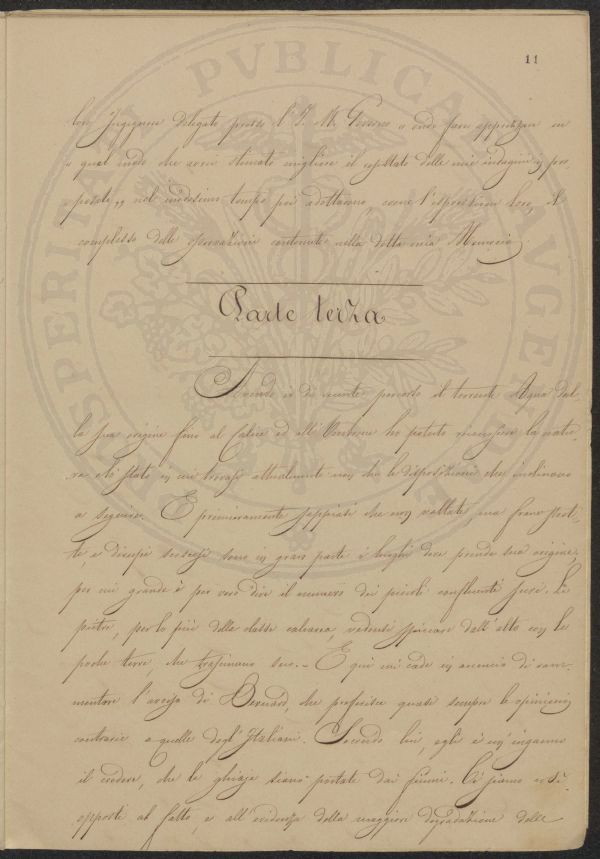 11
loro Ingegnere Delegato presso l'I. R. Governo " onde fare apprezzare in
" quel modo che avrei stimato migliore il resultato delle mie indagini, e pro-
" poste ,, nel medesimo tempo poi adottarono, come l'espressione loro, il
complesso delle osservazioni contenute nella detta mia Memoria.
Parte terza
Avendo io di recente percorso il torrente Agna dal-
la sua origine fino al Calice ed all'Ombrone ho potuto riconoscere la natu-
ra e lo stato in cui trovasi attualmente non che le disposizioni che inclinano
a seguire. E primieramente sappiasi che non vallate, ma frane
e dirupi scoscesi sono in gran parte i luoghi dove prende sua origine,
per cui grande è per vero dire il numero dei piccoli confluenti suoi. Le
pietre, per lo più della classe calcarea, vedonsi spiccare dall'alto con le
poche terre, che trascinano seco. - E qui mi cade in acconcio di ram-
mentare l'avviso di Bernard, che preferisce quasi sempre le opinioni
contrarie a quelle degl'Italiani. Secondo lui, egli è un'inganno
il credere, che le ghiaje siano portate dai fiumi. Ci siamo
opposti al fatto, e all'evidenza della maggiore degradazione delle